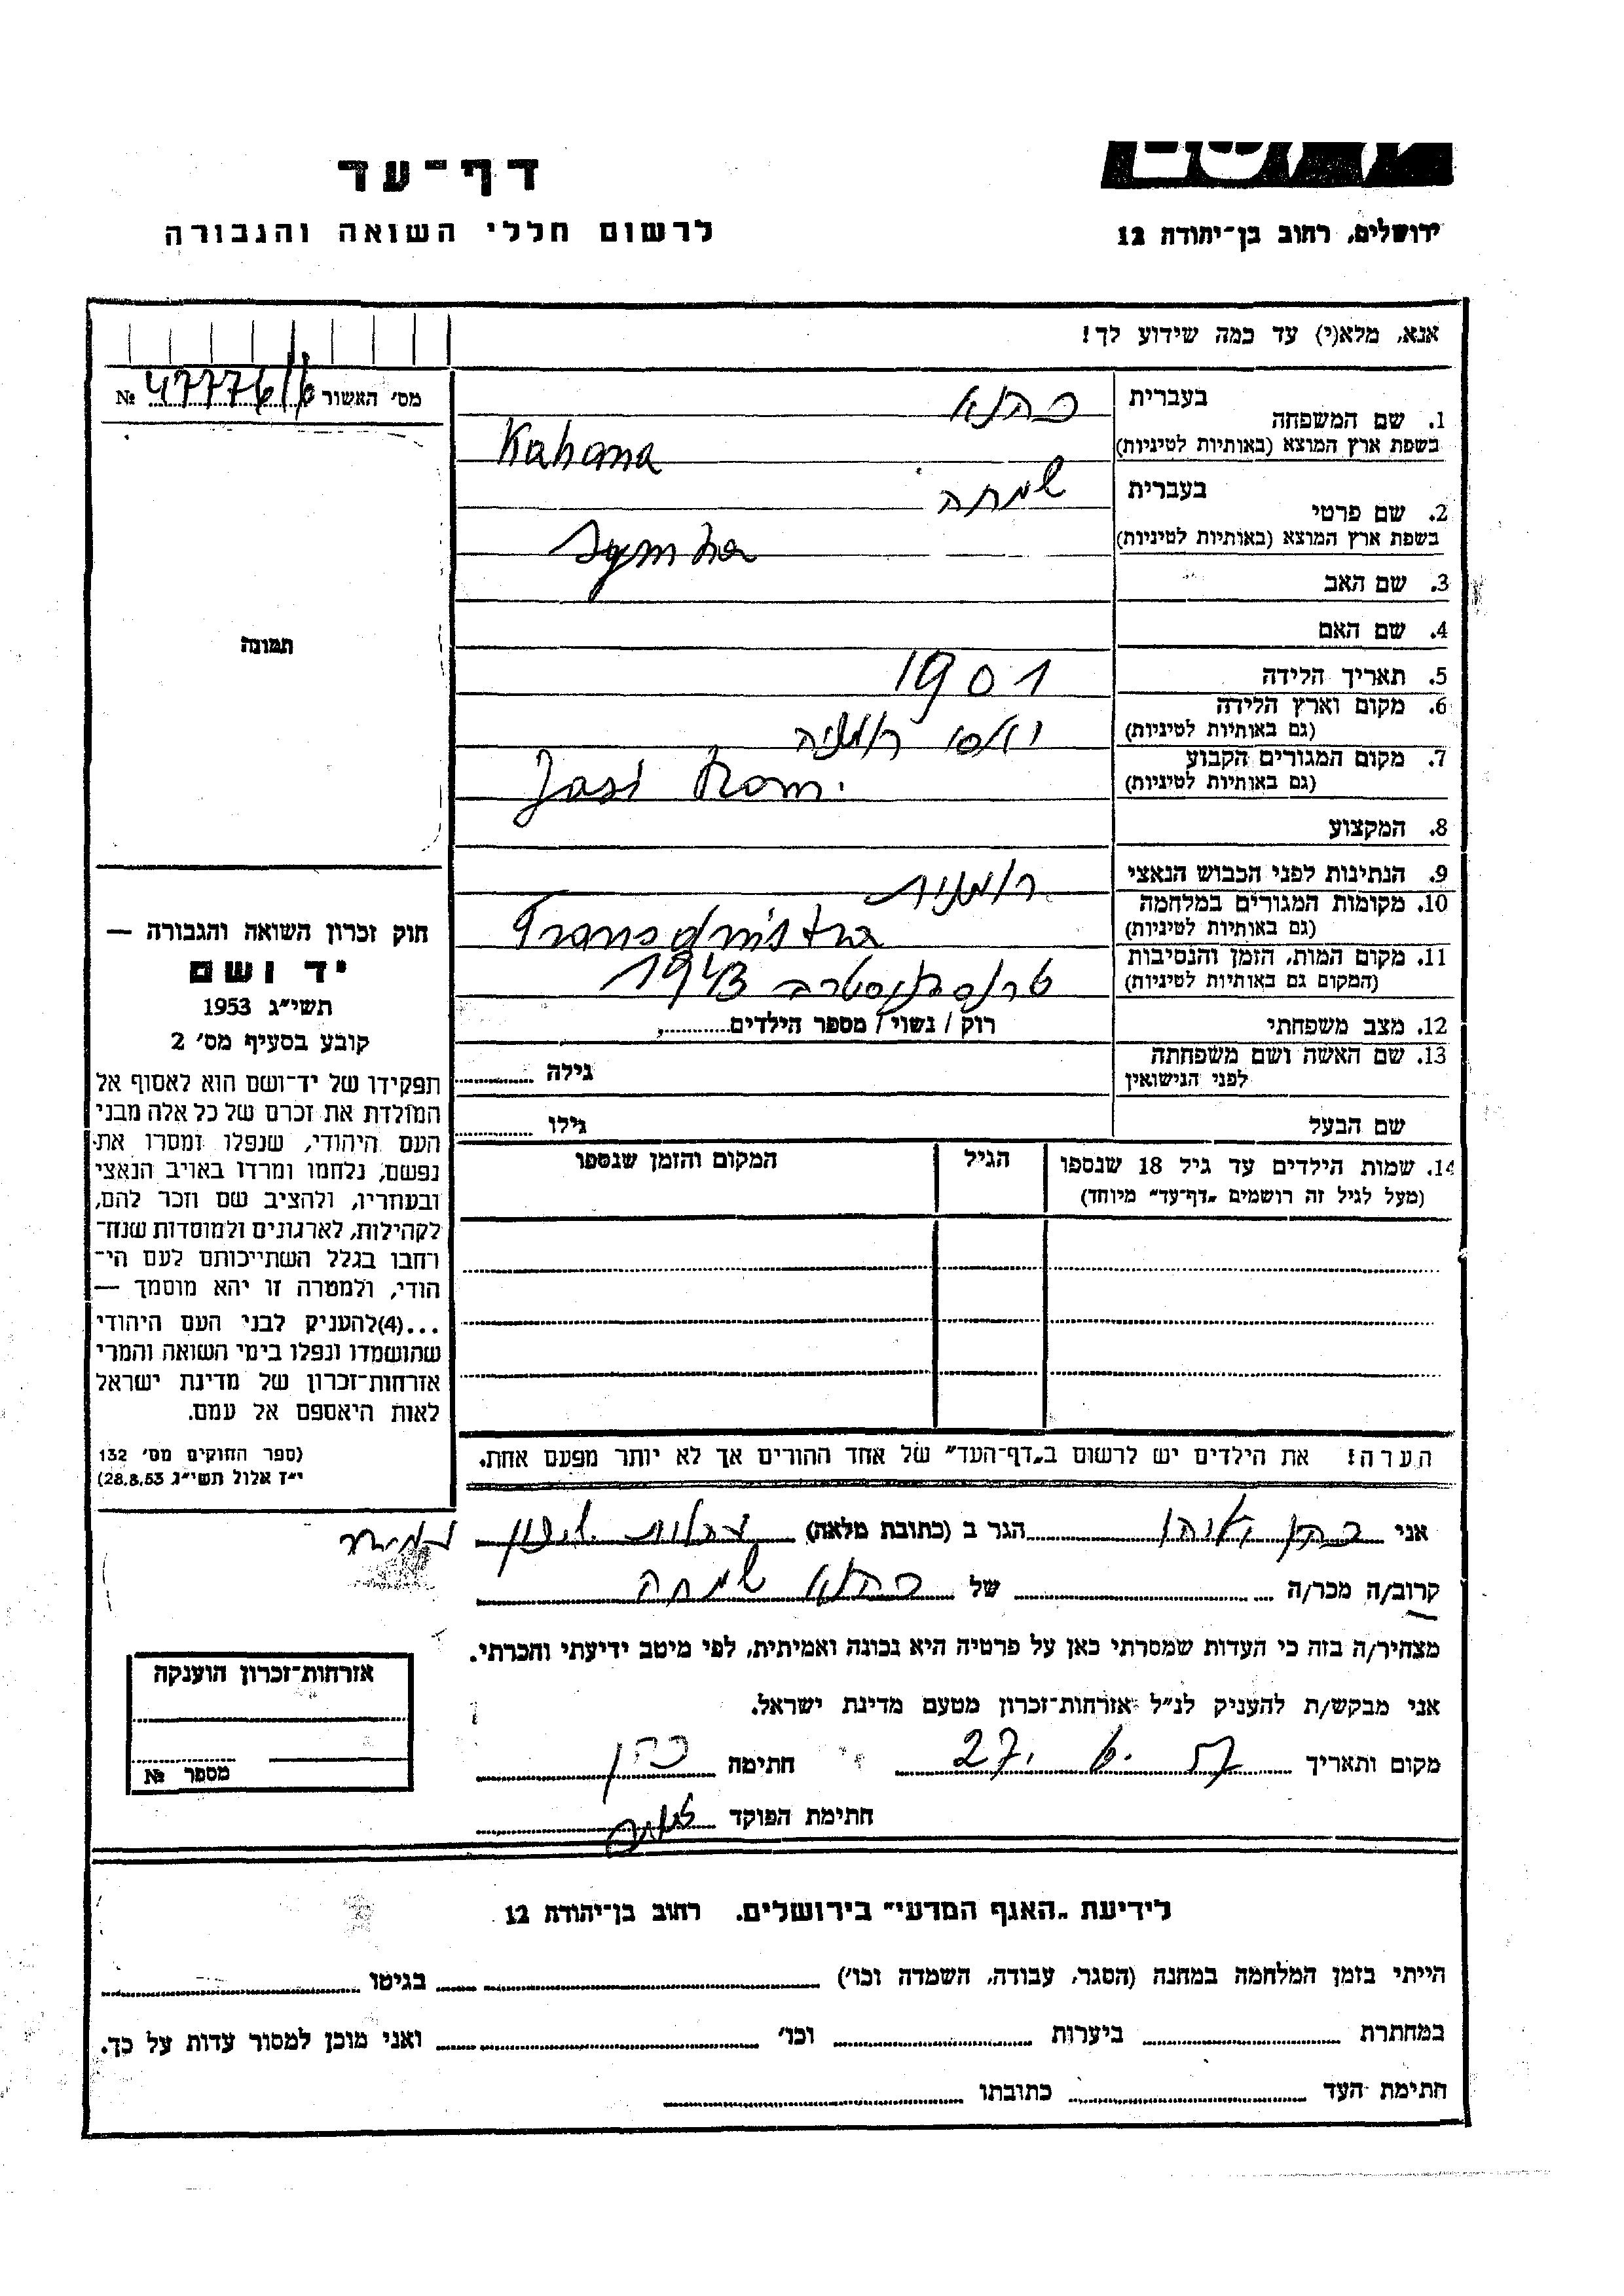 דף-עד
לרשום חללי השואה והגבורה
ירושלים, רחוב בן-יהודה 12
אנא, מלא(י) עד כמה שידוע לך!
מס׳ האשור 47776/6 №
1. שם המשפחה בעברית כהנא
בשפת ארץ המוצא (באותיות לטיניות) Kahana
2. שם פרטי בעברית שמחה
בשפת ארץ המוצא (באותיות לטיניות) Symha
3. שם האב
4. שם האם
5. תאריך הלידה 1901
6. מקום וארץ הלידה
(גם באותיות לטיניות) יאסי רומניה
7. מקום המגורים הקבוע
(גם באותיות לטיניות) Jasi Rom.
8. המקצוע
9. הנתינות לפני הכבוש הנאצי רומנית
10. מקומות המגורים במלחמה
(גם באותיות לטיניות) Transdnistra
11. מקום המות, הזמן והנסיבות
(המקום גם באותיות לטיניות) 1943
12. מצב משפחתי רוק / נשוי / מספר הילדים
13. שם האשה ושם משפחתה
לפני הנישואין גילה
שם הבעל גילו
14. שמות הילדים עד גיל 18 שנספו הגיל המקום והזמן שנספו
(מעל לגיל זה רושמים „דף-עד״ מיוחד)
הערה: את הילדים יש לרשום ב„דף-העד״ של אחד ההורים אך לא יותר מפעם אחת.
תמונה
חוק זכרון השואה והגבורה —
יד ושם
תשי״ג 1953
קובע בסעיף מס׳ 2
תפקידו של יד-ושם הוא לאסוף אל
המולדת את זכרם של כל אלה מבני
העם היהודי, שנפלו ומסרו את
נפשם, נלחמו ומרדו באויב הנאצי
ובעוזריו, ולהציב שם וזכר להם,
לקהילות, לארגונים ולמוסדות שנח-
רחבו בגלל השתייכותם לעם הי-
הודי, ולמטרה זו יהא מוסמך —
...(4)להעניק לבני העם היהודי
שהושמדו ונפלו בימי השואה והמרי
אזרחות-זכרון של מדינת ישראל
לאות היאספם אל עמם.
(ספר החוקים מס׳ 132
י״ז אלול תשי״ג 28.8.53)
אני כהן הגר ב (כתובת מלאה)
קרוב/ה מכר/ה של כהנא שמחה
מצהיר/ה בזה כי העדות שמסרתי כאן על פרטיה היא נכונה ואמיתית, לפי מיטב ידיעתי והכרתי.
אני מבקש/ת להעניק לנ״ל אזרחות-זכרון מטעם מדינת ישראל.
מקום ותאריך 27. 6. 57 חתימה כהן
חתימת הפוקד
אזרחות-זכרון הוענקה
מספר №
לידיעת „האגף המדעי״ בירושלים. רחוב בן-יהודה 12
הייתי בזמן המלחמה במחנה (הסגר, עבודה, השמדה וכו׳) בגיטו
במחתרת ביערות וכו׳ ואני מוכן למסור עדות על כך.
חתימת העד כתובתו